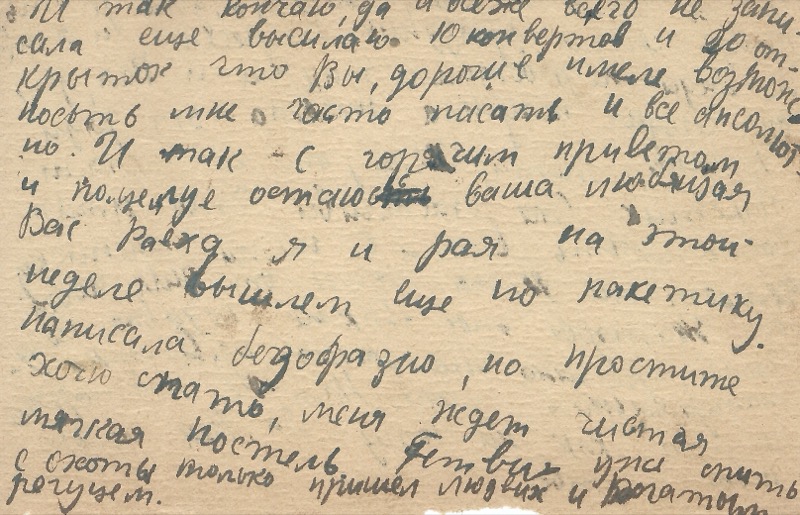 И так кончаю, да и все же всего не запи-
сала еще высилаю 10 конвертов и 20 от-
крыток что Вы, дорогие имеле возмож
ность мне часто писать и все
но. И так с горячим приветом
и поцелуе остаюсь ваша любящая
Вас я и рая на этой
неделе вышлем еще по пакетику.
Написала безобразно, но простите
хочю спать, меня ждет чистая
мягкая постель уже спить
с охоты только пришел и богатым